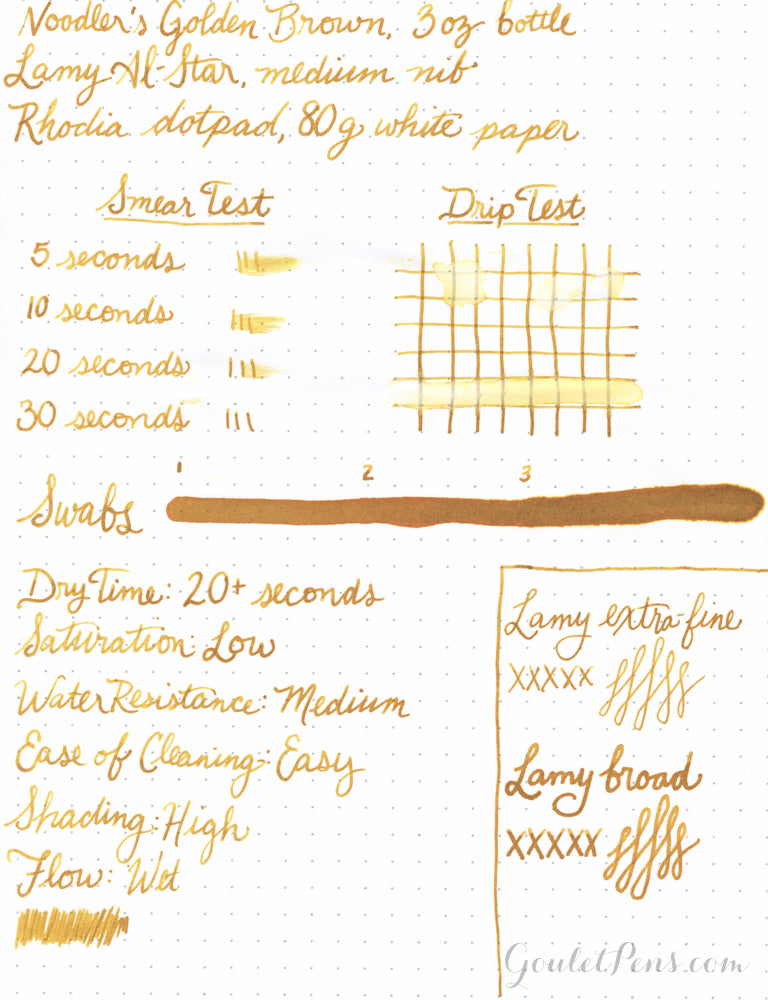 Noodler's Golden Brown, 3 oz bottle
Lamy Al-Star, medium nib
Rhodia dotpad, 80g white paper
Smear Test
5 seconds
10 seconds
20 seconds
30 seconds
Drip Test
1 2 3
Swabs
Dry Time: 20+ seconds
Saturation: Low
Water Resistance: Medium
Ease of Cleaning: Easy
Shading: High
Flow: Wet
Lamy extra-fine
XXXXX
Lamy broad
XXXXX
GouletPens.com